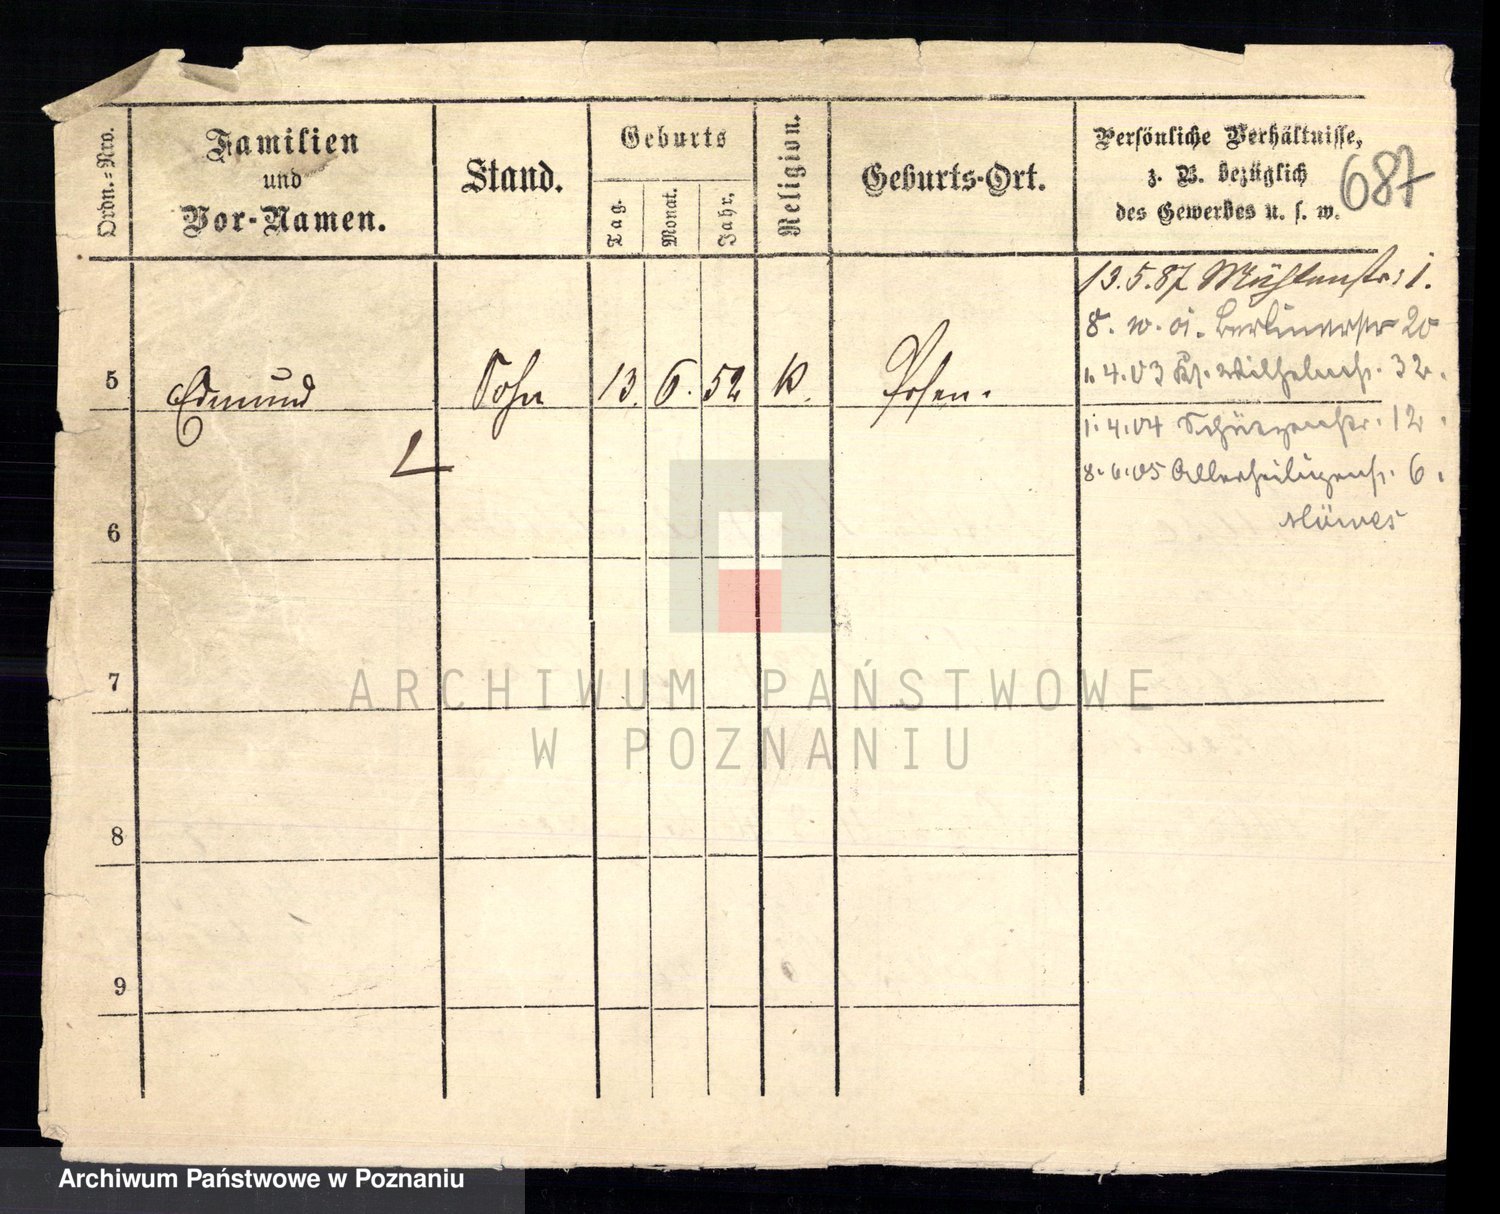 Ordn.=Nro.
Familien
und
Vor-Namen.
Stand.
Geburts
Tag.
Monat.
Jahr.
Religion.
Geburts-Ort.
Persönliche Verhältnisse,
z. B. bezüglich
des Gewerbes u. s. w.
687
13.5.87 Mühlenstr: 1.
8. Berlinerstr 20
1. 4. 03 Kl. Wilhelmstr. 32.
5 Edmund Sohn 13. 6. 52 K. Posen.
1. 4. 04 Schützenstr. 12.
8. 6. 05 Allerheiligenstr. 6.
6
7
8
9
ARCHIWUM PAŃSTWOWE
W POZNANIU
Archiwum Państwowe w Poznaniu